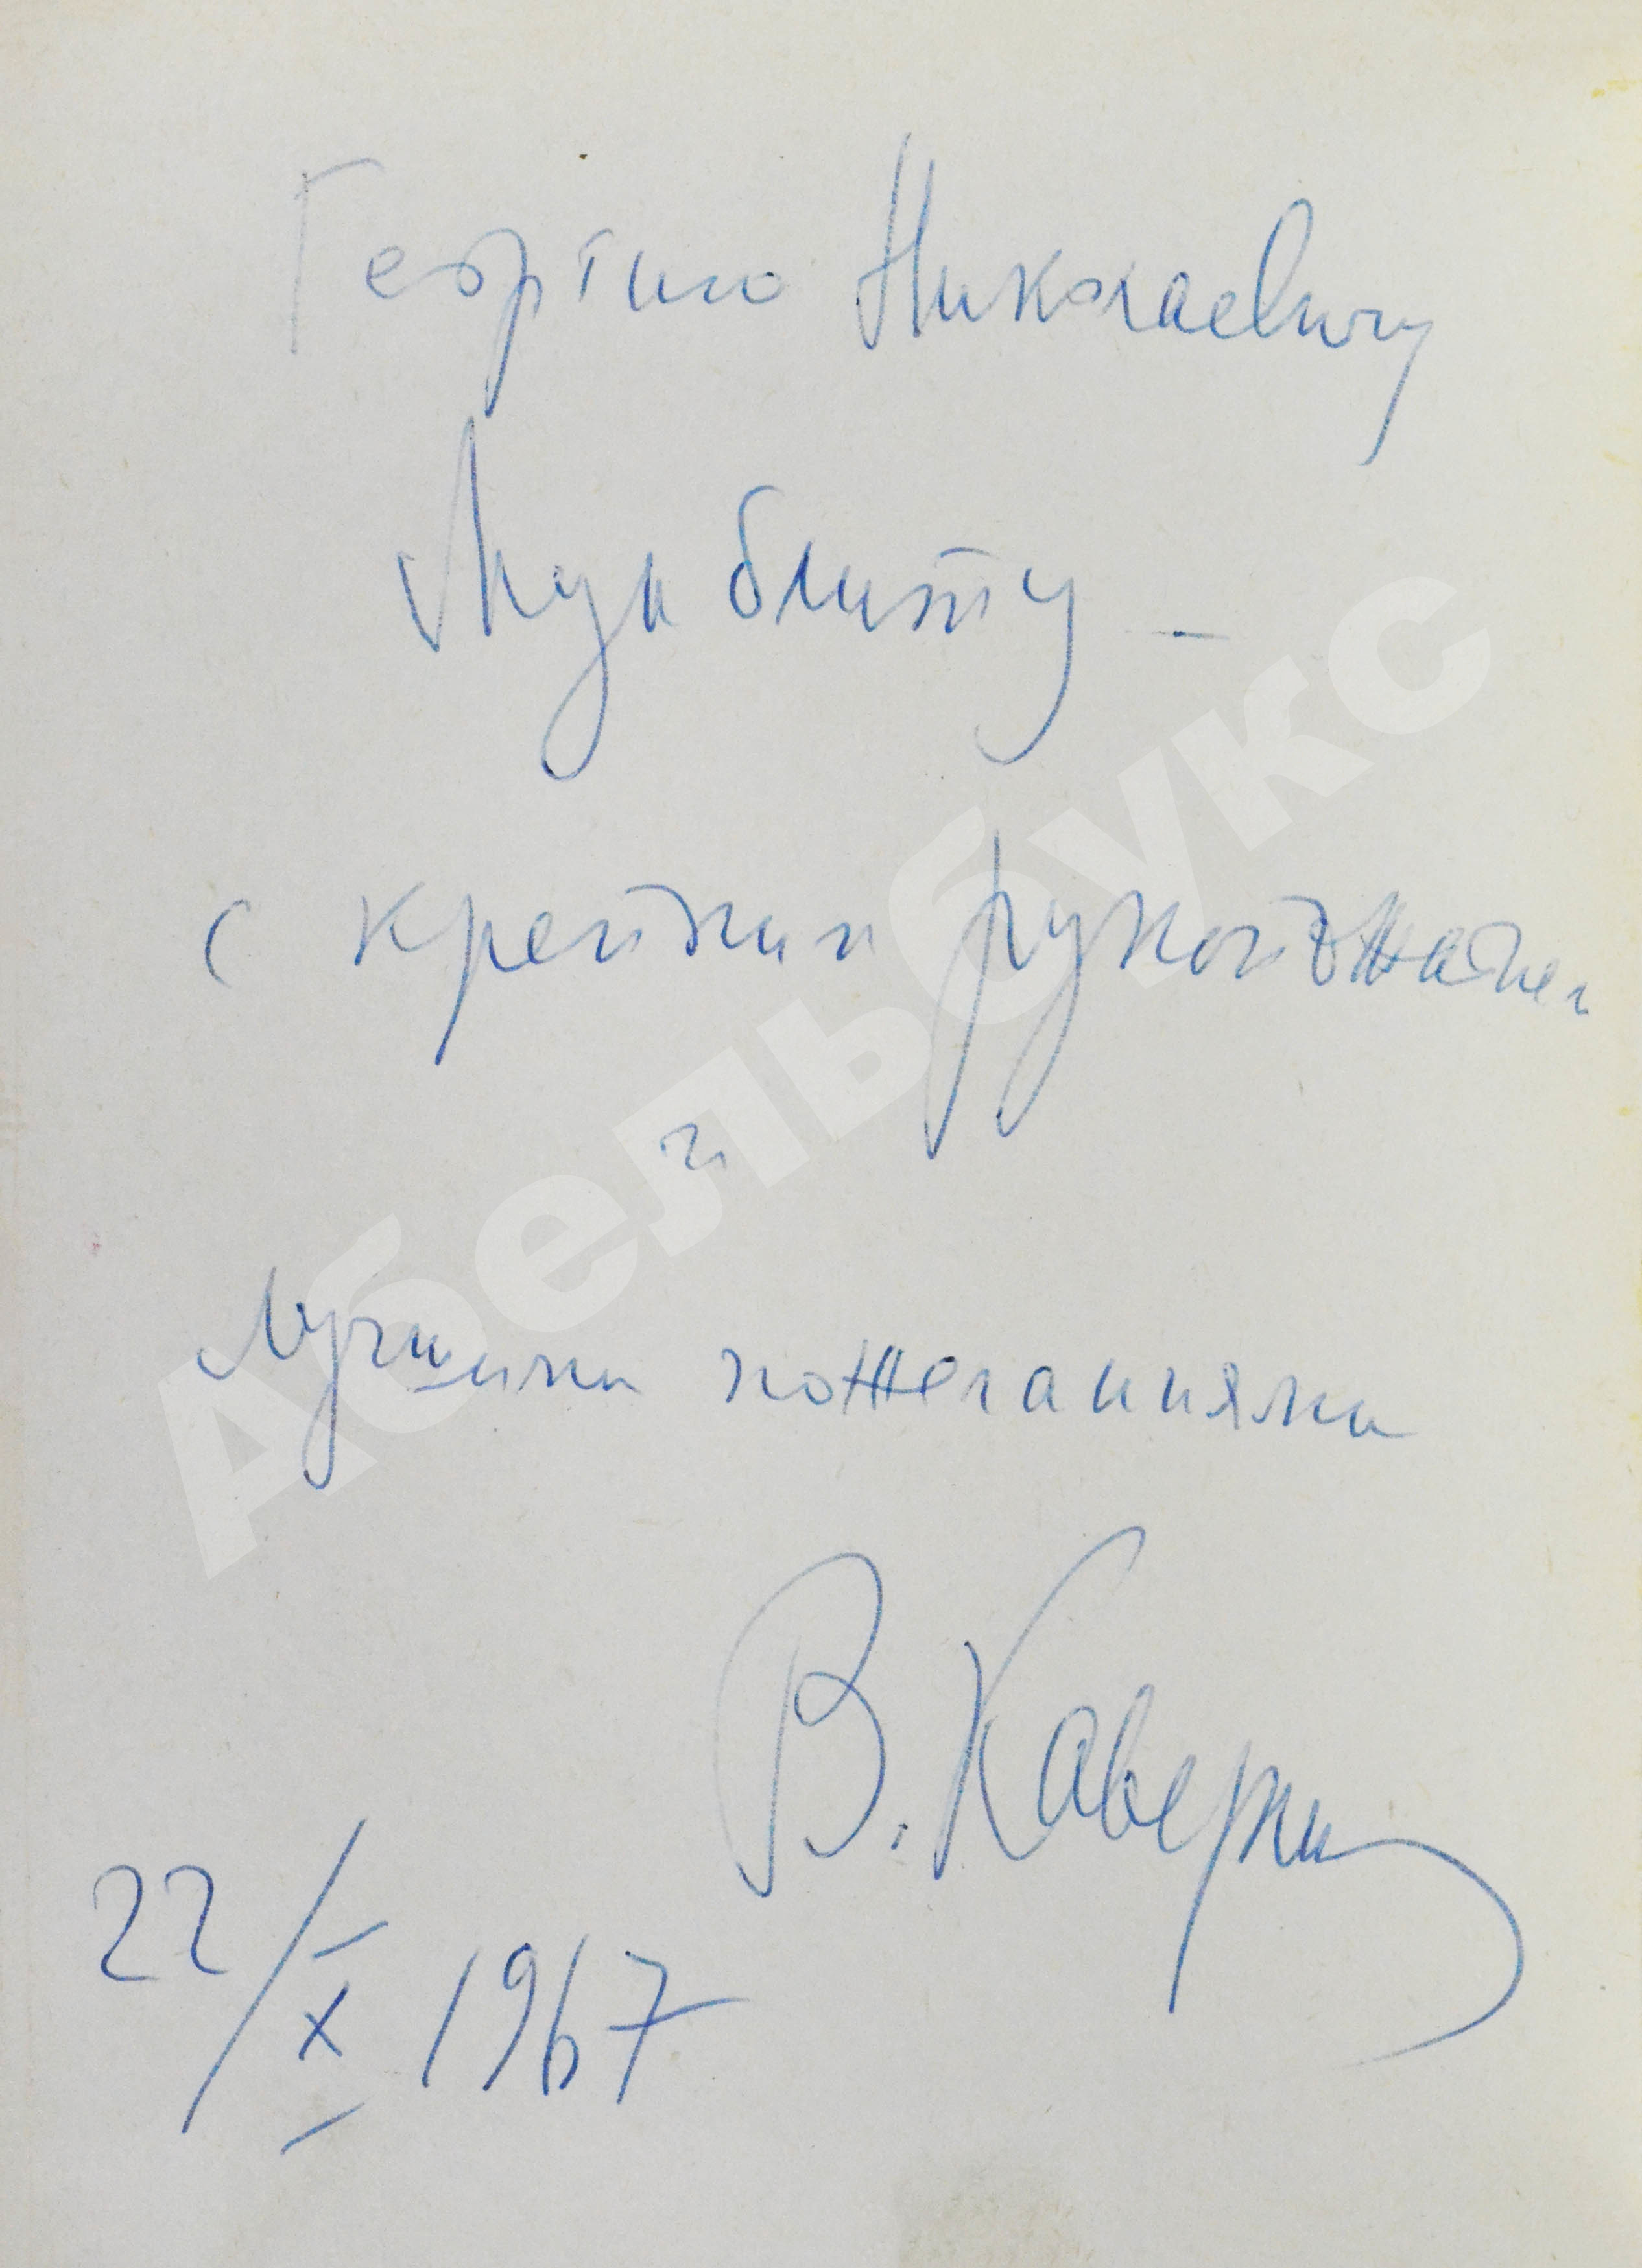 Георгию Николаевичу
Мунблиту –
с крепким рукопожатием
и
лучшими пожеланиями
В. Каверин
22/X 1967
Абельбукс